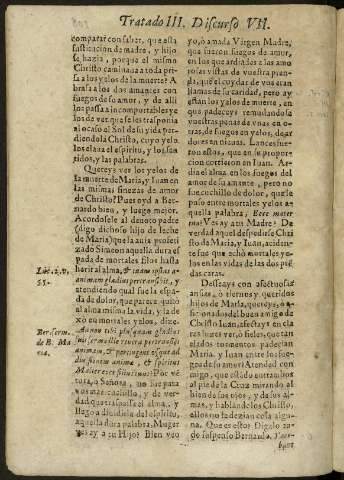 Tratado III. Discurso VII.
comparar con saber, que esta
sustitucion de madre, y hijo
se hazia, porque el mismo
Christo caminava a toda pri-
sa a los yelos de la muerte? A
brasa a los dos amantes con
fuegos de su amor, y de allí
los passa a incomportables ye
los de ver que se les trasponia
al ocaso el Sol de su vida per-
diendo la Christo, cuyo yelo
los elara el espiritu, y los sen
tidos, y las palabras.
Quereys ver los yelos de
la muerte de Maria, y Iuan en
las mismas finezas de amor
de Christo? Pues oyd a Ber-
nardo bien, y luego mejor.
Acordosele al devoto padre
(digo dichoso hijo de leche
de Maria) que la avia profeti
zado Simeon aquella dura es
pada de mortales filos hasta
herir al alma, & tuam ipsius
animam gladius pertransibit, y
atendiendo qual fue la espa-
da de dolor, que parece quitò
al alma misma la vida, y la de
xò en mortales yelos, dize.
Luc. 2. v.
Ber. serm.
de B. Ma
ria.
animam, & pertingens usque ad
divisionem animæ, & spiritus
Mulier ecce filius tuus: Por vẽ
tura, o Señora, no fue para
vos mas que cuchillo, y de ver-
dad que traspassò el alma, y
llegò a division del espiritu,
aquella dura palabra, Muger
ves ay a tu Hijo? Bien veo
yo, ò amada Virgen Madre,
que fueron fuegos de amor,
en los que ardiades a las amo
rosas vistas de vuestra pren-
da, que el cuydar de vos eran
llamas de su caridad, pero ay
estàn los yelos de muerte, en
que padeceys remudandose
vuestras penas de unas en o-
tras, de fuegos en yelos, de ar
dores en ticuras. Lances fue-
ron estos, que en su propor-
cion corrieron en Iuan. Ar-
dia el alma en los fuegos del
amor de su amante, pero no
fue cuchillo de dolor, que le
puso entre mortales yelos a-
quella palabra, Ecce mater
tua? Ves ay a tu Madre? De
verdad aquel despedirse Chri
sto de Maria, y Iuan, aciden-
te fue que echò mortales ye-
los en las vidas de las dos pie
dras caras.
Desseays con afectuosas
ansias, ò tiernos y queridos
hijos de Maria, quereys, o a-
ficionados del buen amigo de
Christo Iuan, afectays en ela
ros
elados tormentos padecian
Maria, y Iuan entre los fue-
gos de su amor? Atended con
migo, que estàdo entrambos
al pie de la Cruz mirando al
bien de sus ojos, y de sus al-
mas, y hablandoles Christo,
ellos no le dezian cosa algu-
na. Que es esto? Digalo to-
do suspenso Bernardo.